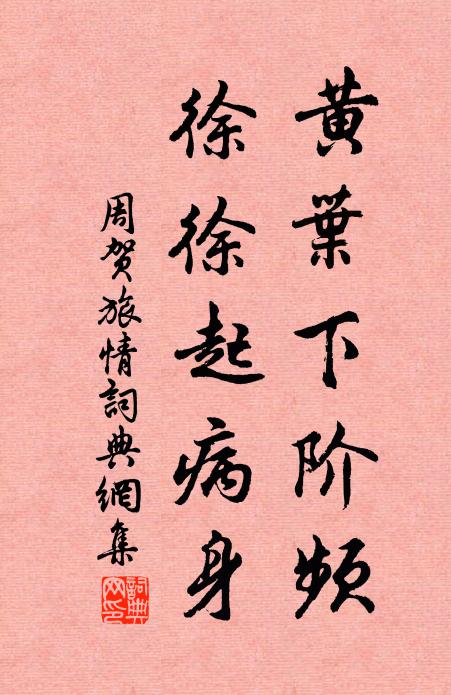 黄葉下阶频
徐徐起病身
周贺旅情詞典網集
詞典网印